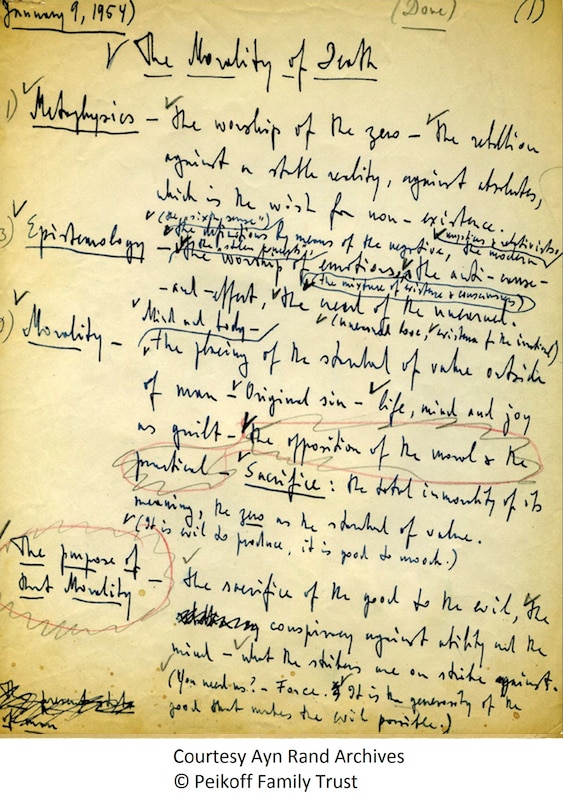 January 9, 1954)
(Done)
(1)
The Morality of Death
1) Metaphysics – The worship of the zero – the rebellion
against a stable reality, against absolutes,
which is the wish for non-existence.
("the sixth sense")
the definitions by means of the negative,
the modern
"the stolen concepts"
3) Epistemology – the worship of emotions, the anti-cause-
(the mixture of existence & consciousness)
-and-effect, the need of the unearned.
(unearned love,
Mind and body –
2) Morality – the placing of the standard of value outside
of man – Original sin – life, mind and joy
as guilt – the opposition of the moral & the
practical – Sacrifice: the total immorality of its
meaning, the zero as the standard of value.
(It is evil to produce, it is good to mooch.)
The purpose of
that Morality –
the sacrifice of the good to the evil, the
conspiracy against ability and the
mind – what the strikers are on strike against.
(You need us? – Force. It is the generosity of the
good that makes the evil possible.)
Courtesy Ayn Rand Archives
© Peikoff Family Trust